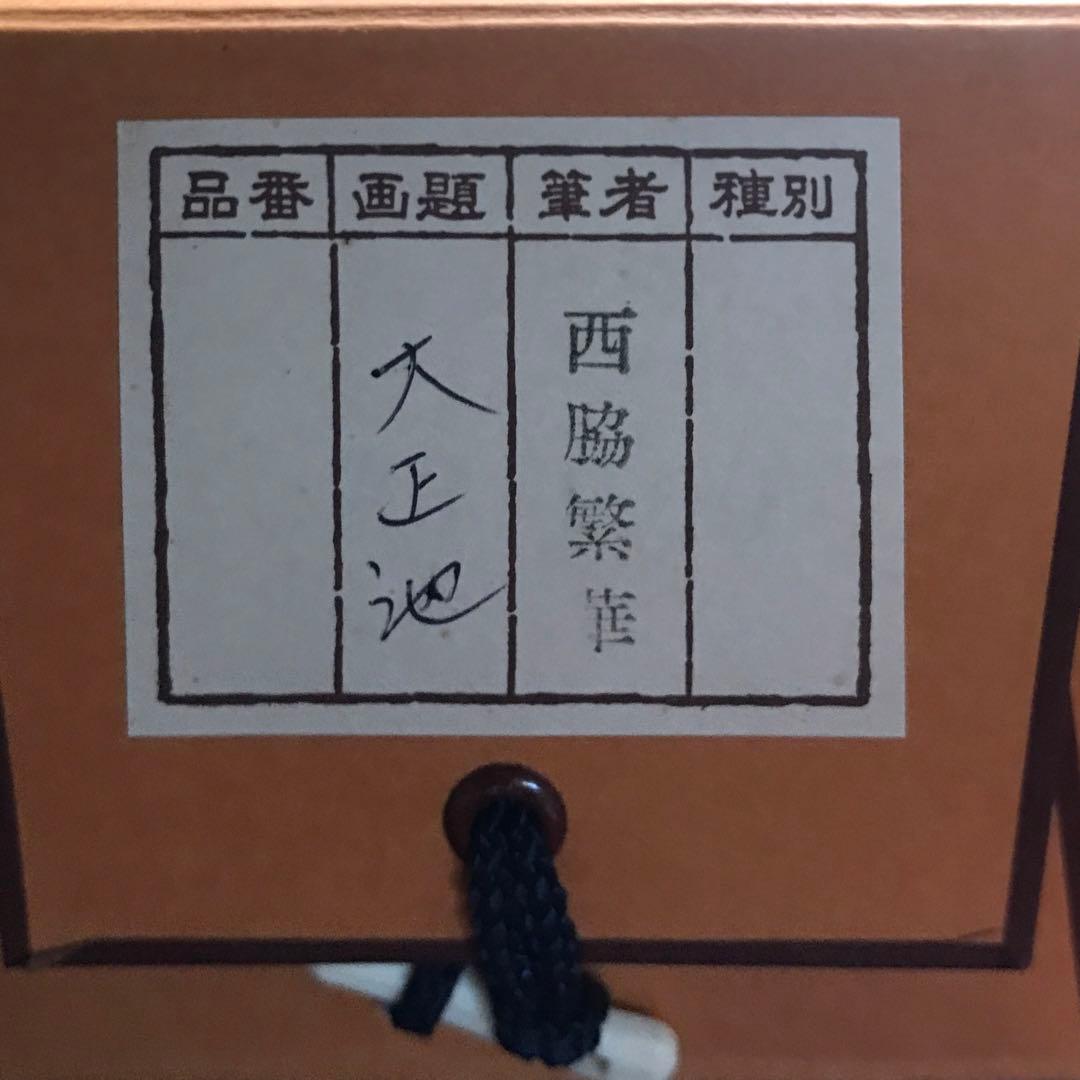 品番 画題 筆者 種別
西脇繁
大正池